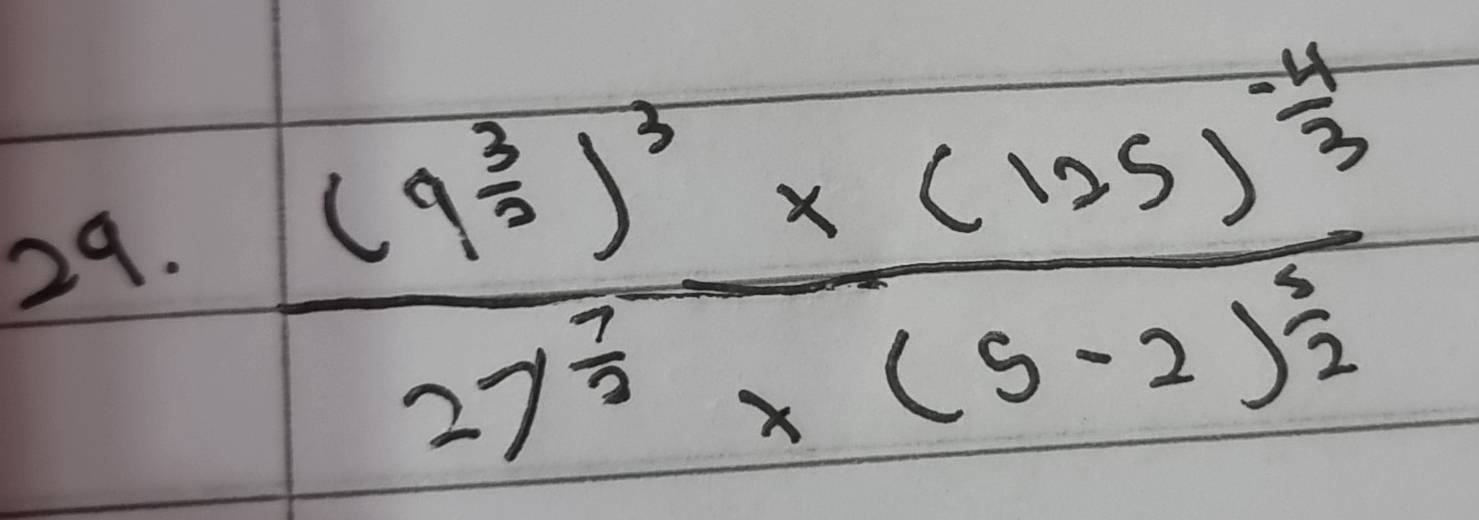 29. (9^{3/2})^3 × (125)^{-4/3}
27^{7/2} × (5-2)^{5/2}